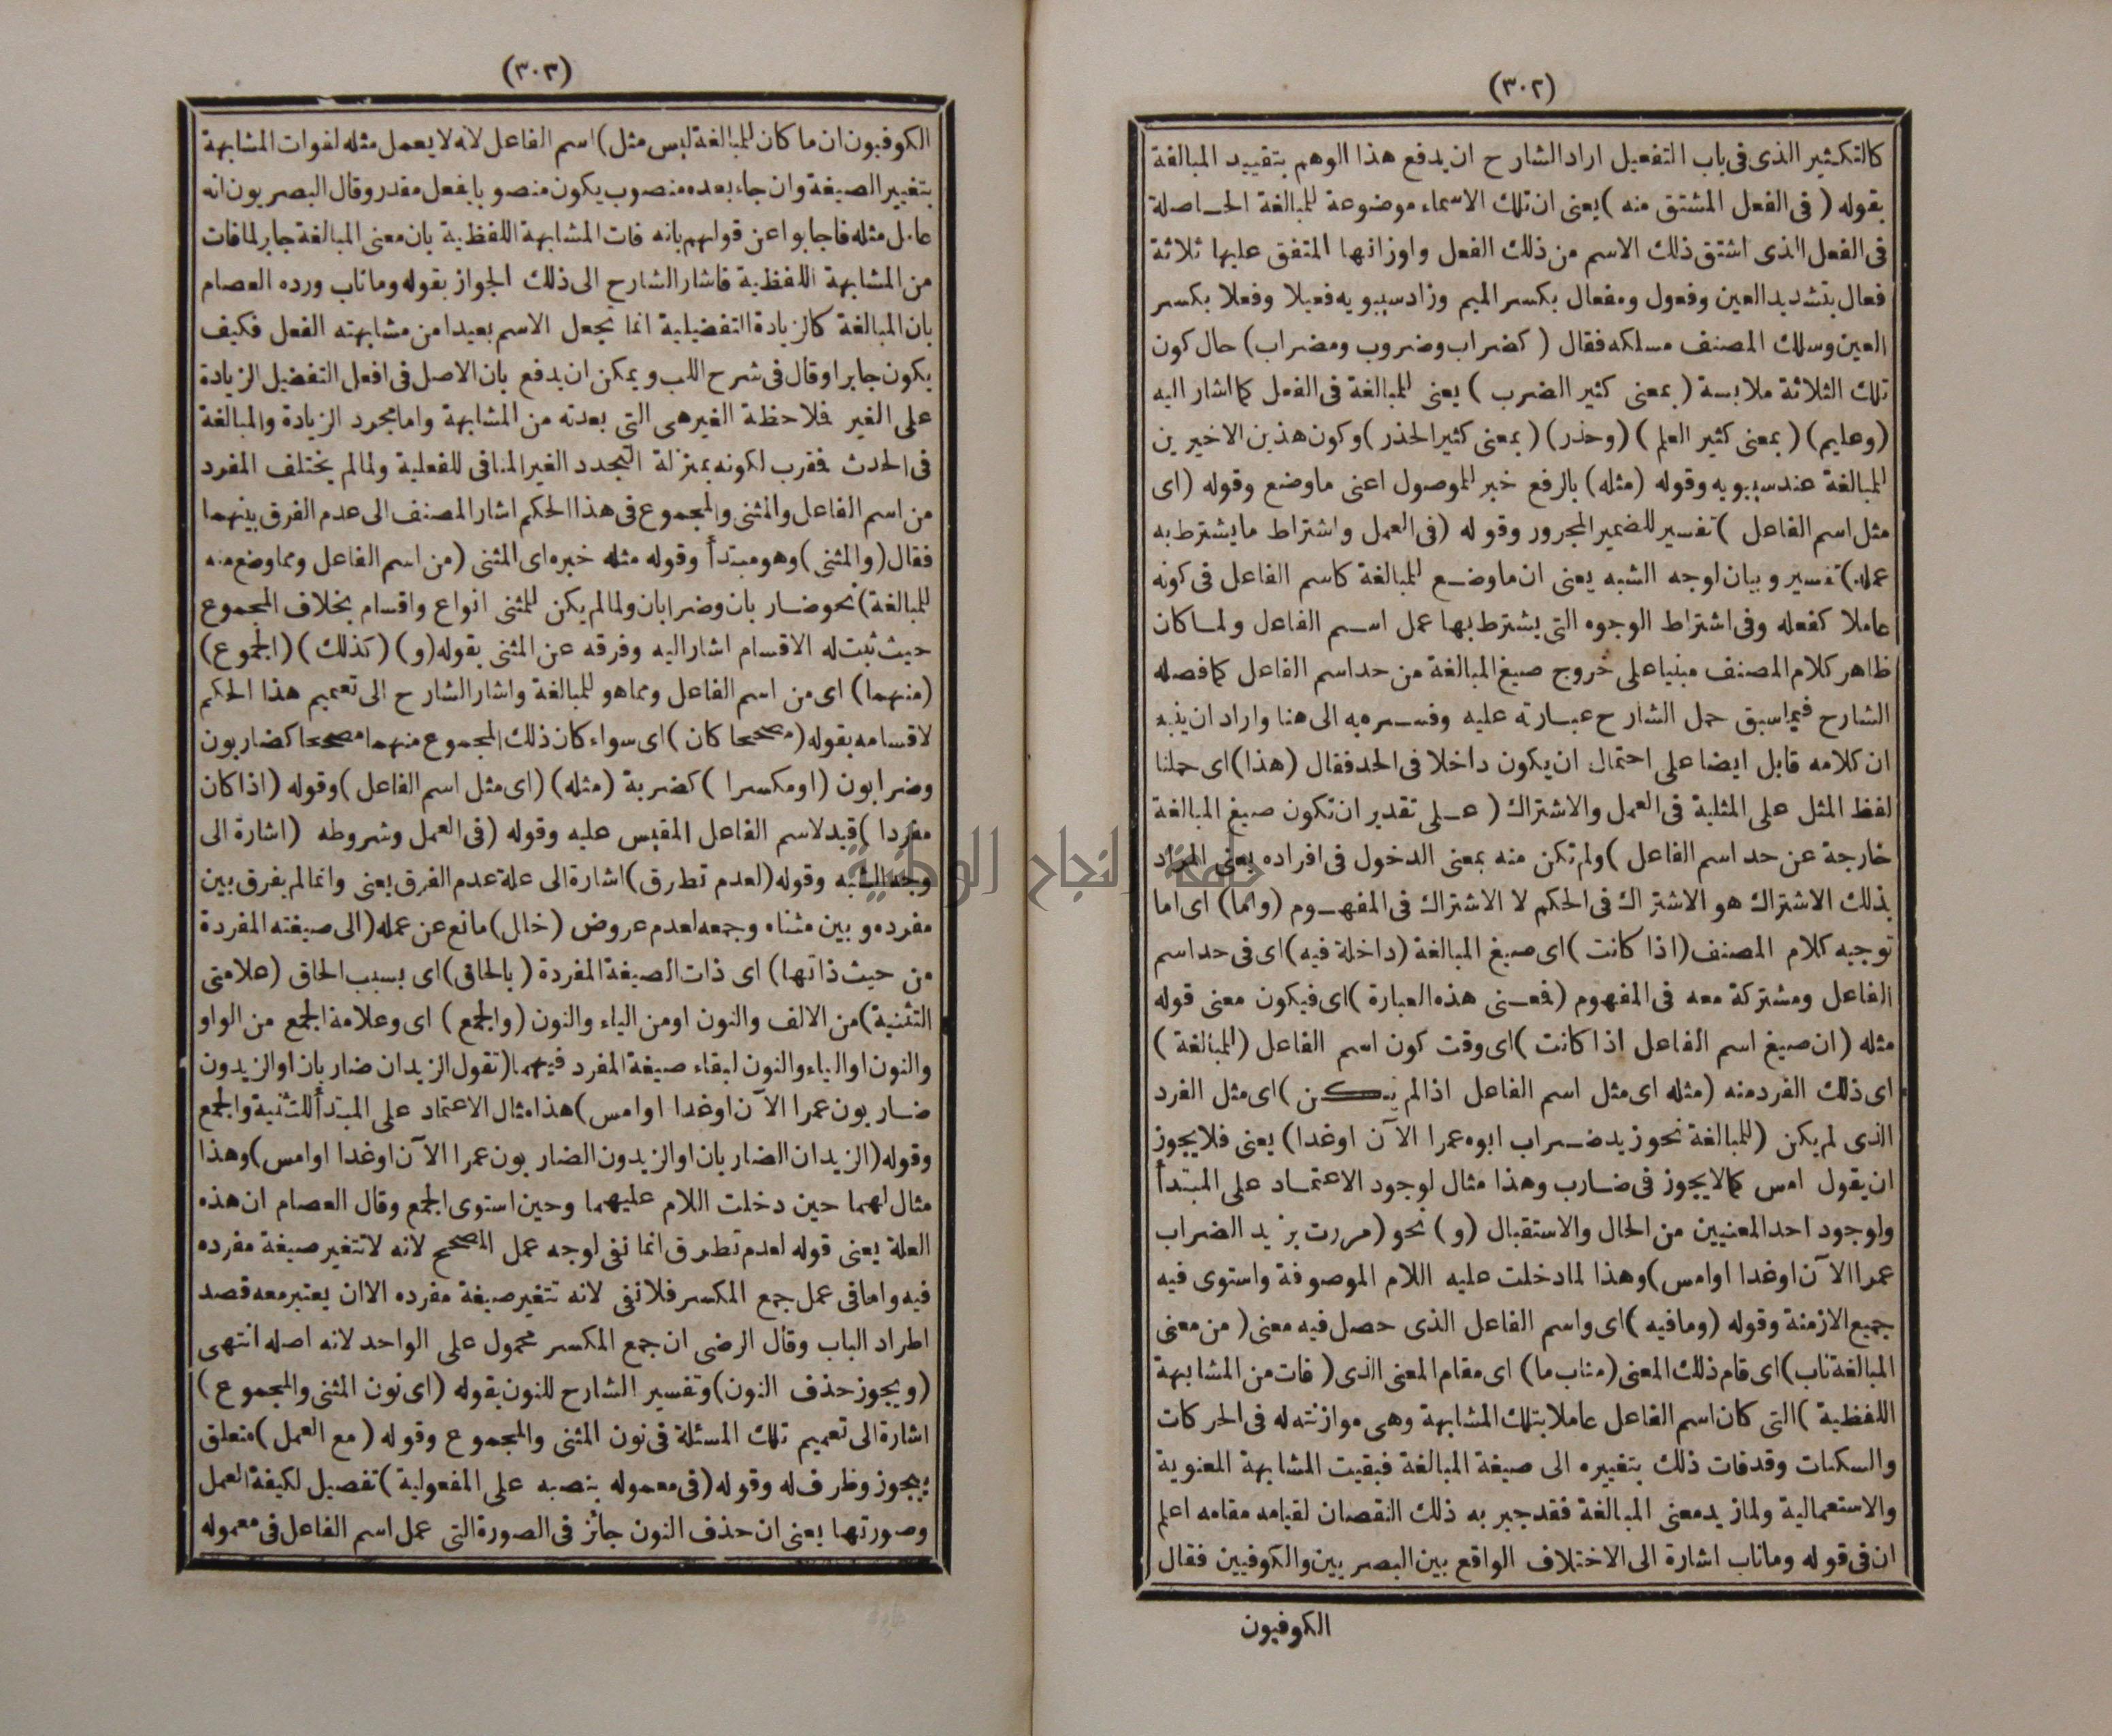 (٣٠٢)
كالتكثير الذى فى باب التفعيل اراد الشارح ان يدفع هذا الوهم بتقييد المبالغة
بقوله ( فى الفعل المشتق منه ) يعنى ان تلك الاسماء موضوعة للمبالغة الحاصلة
فى الفعل الذى اشتق ذلك الاسم من ذلك الفعل واوزانها المتفق عليها ثلاثة
فعال بتشديد العين وفعول ومفعال بكسر الميم وزاد سيبويه فعيلا وفعلا بكسر
العين وسلك المصنف مسلكه فقال ( كضراب وضروب ومضراب ) حال كون
تلك الثلاثة ملابسة ( بمعنى كثير الضرب ) يعنى للمبالغة فى الفعل كما اشار اليه
(وعليم) ( بمعنى كثير العلم ) (وحذر) ( بمعنى كثير الحذر ) وكون هذين الاخيرين
للمبالغة عند سيبويه وقوله (مثله) بالرفع خبر للموصول اعنى ما وضع وقوله (اى
مثل اسم الفاعل ) تفسير للضمير المجرور وقوله (فى العمل واشتراط ما يشترط به
عمله) تفسير وبيان لوجه الشبه يعنى ان ما وضع للمبالغة كاسم الفاعل فى كونه
عاملا كفعله وفى اشتراط الوجوه التى يشترط بها عمل اسم الفاعل ولما كان
ظاهر كلام المصنف مبنيا على خروج صيغ المبالغة من حد اسم الفاعل كما فصله
الشارح فيما سبق حمل الشارح عبارته عليه وفسره به الى هنا واراد ان ينبه
ان كلامه قابل ايضا على احتمال ان يكون داخلا فى الحد فقال (هذا) اى حملنا
لفظ المثل على المثلية فى العمل والاشتراك ( على تقدير ان تكون صيغ المبالغة
خارجة عن حد اسم الفاعل ) ولم تكن منه بمعنى الدخول فى افراده يعنى المراد
بذلك الاشتراك هو الاشتراك فى الحكم لا الاشتراك فى المفهوم (واما) اى اما
توجيه كلام المصنف (اذا كانت ) اى صيغ المبالغة (داخلة فيه) اى فى حد اسم
الفاعل ومشتركة معه فى المفهوم (فمعنى هذه العبارة ) اى فيكون معنى قوله
مثله (ان صيغ اسم الفاعل اذا كانت ) اى وقت كون اسم الفاعل (للمبالغة )
اى ذلك الفرد منه (مثله اى مثل اسم الفاعل اذا لم يكن ) اى مثل الفرد
الذى لم يكن (للمبالغة نحو زيد ضراب ابوه عمرا الآن اوغدا) يعنى فلا يجوز
ان يقول امس كما لا يجوز فى ضارب وهذا مثال لوجود الاعتماد على المبتدأ
ولوجود احد المعنيين من الحال والاستقبال (و) نحو (مررت بزيد الضراب
عمرا الآن اوغدا اوامس) وهذا لما دخلت عليه اللام الموصوفة واستوى فيه
جميع الازمنة وقوله (وما فيه ) اى واسم الفاعل الذى حصل فيه معنى ( من معنى
المبالغة ناب) اى قام ذلك المعنى (مناب ما) اى مقام المعنى الذى ( فات من المشابهة
اللفظية ) التى كان اسم الفاعل عاملا بتلك المشابهة وهى موازنته له فى الحركات
والسكنات وقد فات ذلك بتغييره الى صيغة المبالغة فبقيت المشابهة المعنوية
والاستعمالية ولما زيد معنى المبالغة فقد جبر به ذلك النقصان لقيامه مقامه اعلم
ان فى قوله وما ناب اشارة الى الاختلاف الواقع بين البصريين والكوفيين فقال
الكوفيون
(٣٠٣)
الكوفيون ان ما كان للمبالغة ليس مثل) اسم الفاعل لانه لا يعمل مثله لفوات المشابهة
بتغيير الصيغة وان جاء بعده منصوب يكون منصوبا بفعل مقدر وقال البصريون انه
عامل مثله فاجابوا عن قولهم بانه فات المشابهة اللفظية بان معنى المبالغة جابر لما فات
من المشابهة اللفظية فاشار الشارح الى ذلك الجواز بقوله وما ناب ورده العصام
بان المبالغة كالزيادة التفضيلية انما تجعل الاسم بعيدا من مشابهته الفعل فكيف
يكون جابرا وقال فى شرح اللب ويمكن ان يدفع بان الاصل فى افعل التفضيل الزيادة
على الغير فلاحظة الغير هى التى بعدته من المشابهة واما مجرد الزيادة والمبالغة
فى الحدث فقرب لكونه بمنزلة التجدد الغير المنافى للفعلية ولما لم يختلف المفرد
من اسم الفاعل والمثنى والمجموع فى هذا الحكم اشار المصنف الى عدم الفرق بينهما
فقال (والمثنى) وهو مبتدأ وقوله مثله خبره اى المثنى (من اسم الفاعل ومما وضع منه
للمبالغة) نحو ضاربان وضرابان ولما لم يكن للمثنى انواع واقسام بخلاف المجموع
حيث ثبت له الاقسام اشار اليه وفرقه عن المثنى بقوله (و) (كذلك) (المجموع)
(منهما) اى من اسم الفاعل ومما هو للمبالغة واشار الشارح الى تعميم هذا الحكم
لاقسامه بقوله (مصححا كان ) اى سواء كان ذلك المجموع منهما مصححا كضاربون
وضرابون (او مكسرا ) كضربة (مثله) (اى مثل اسم الفاعل ) وقوله (اذا كان
مفردا ) قيد لاسم الفاعل المقيس عليه وقوله (فى العمل وشروطه (اشارة الى
وجه الشبه وقوله (لعدم تطرق) اشارة الى علة عدم الفرق يعنى وانما لم يفرق بين
مفرده وبين مثناه وجمعه لعدم عروض (خلل) مانع عن عمله (الى صيغته المفردة
من حيث ذاتها) اى ذات الصيغة المفردة (بالحاق) اى بسبب الحاق (علامتى
التثنية) من الالف والنون اومن الياء والنون (والجمع) اى وعلامة الجمع من الواو
والنون او الياء والنون لبقاء صيغة المفرد فيهما (تقول الزيدان ضاربان او الزيدون
ضاربون عمرا الآن اوغدا اوامس) هذا مثال الاعتماد على المبتدأ للتثنية والجمع
وقوله (الزيدان الضاربان او الزيدون الضاربون عمرا الآن اوغدا اوامس) وهذا
مثال لهما حين دخلت اللام عليهما وحين استوى الجمع وقال العصام ان هذه
العلة يعنى قوله لعدم تطرق انما تفى لوجه عمل المصحح لانه لا تتغير صيغة مفرده
فيه واما فى عمل جمع المكسر فلا تفى لانه تتغير صيغة مفرده الا ان يعتبر معه قصد
اطراد الباب وقال الرضى ان جمع المكسر محمول على الواحد لانه اصله انتهى
(ويجوز حذف النون) وتفسير الشارح للنون بقوله (اى نون المثنى والمجموع )
اشارة الى تعميم تلك المسئلة فى نون المثنى والمجموع وقوله (مع العمل) متعلق
بيجوز وظرف له وقوله (فى معموله بنصبه على المفعولية) تفصيل لكيفة العمل
وصورتها يعنى ان حذف النون جائز فى الصورة التى عمل اسم الفاعل فى معموله
جامعة النجاح الوطنية